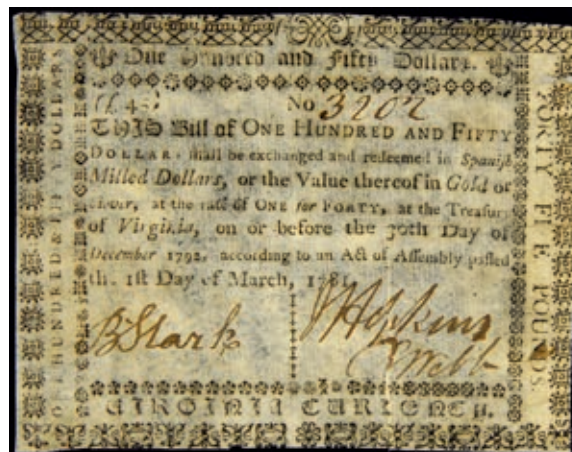 One Hundred and Fifty Dollars.
(£. 45) No 3202
THIS Bill of ONE HUNDRED AND FIFTY
DOLLARS, shall be exchanged and redeemed in Spanish
Milled Dollars, or the Value thereof in Gold or
Silver, at the rate of ONE for FORTY, at the Treasury
of Virginia, on or before the 30th Day of
December 1792, according to an Act of Assembly passed
the 1st Day of March, 1781.
B Stark
J Hopkins
Webb
VIRGINIA CURRENCY.
ONE HUNDRED & FIFTY DOLLARS
FORTY FIVE POUNDS